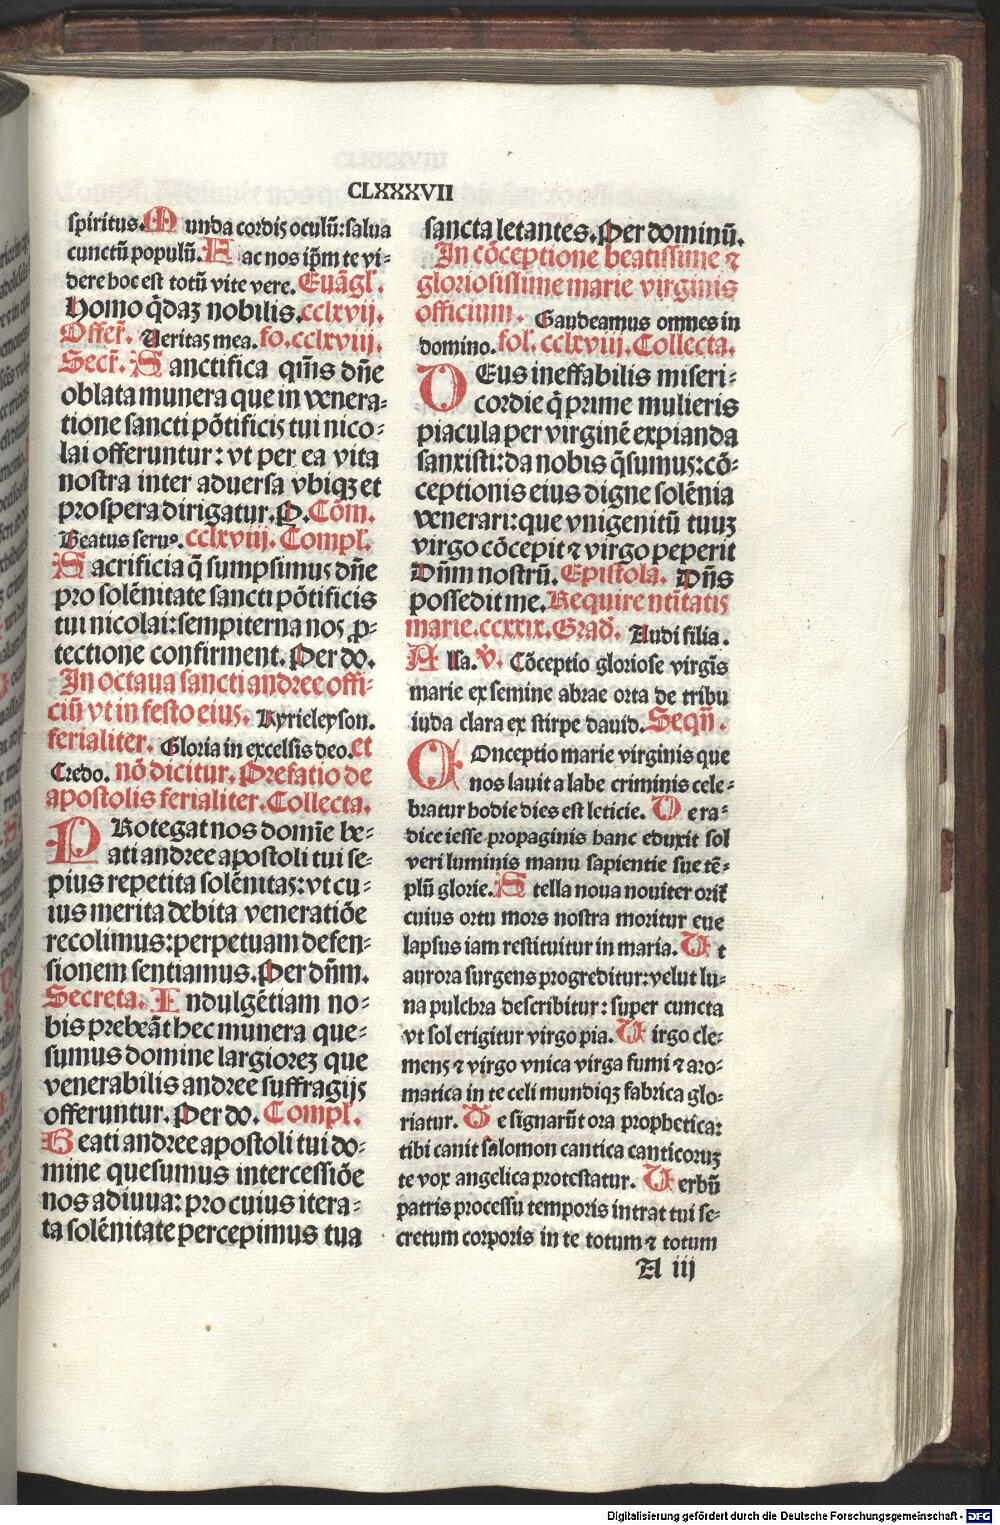 CLXXXVII
spiritus. Munda cordis oculū: salua
cunctū populū. Fac nos ip̄m te vi⸗
dere hoc est totū vite vere. Euāgl̄.
Homo q̄daꝫ nobilis. cclxvij.
Offer̄. Ueritas mea. fo. cclxviij.
Secr̄. Sanctifica qm̄s dn̄e
oblata munera que in venera⸗
tione sancti pōtificis tui nico⸗
lai offeruntur: vt per ea vita
nostra inter aduersa vbiqꝫ et
prospera dirigatur. P. Cōm.
Beatus seruꝰ. cclxviij. Compl̄.
Sacrificia q̄ sumpsimus dn̄e
pro solēnitate sancti pōtificis
tui nicolai: sempiterna nos ꝓ⸗
tectione confirment. Per do.
In octaua sancti andree offi⸗
ciū vt in festo eius. Kyrieleyson.
ferialiter. Gloria in excelsis deo. et
Credo. nō dicitur. Prefatio de
apostolis ferialiter. Collecta.
PRotegat nos domīe be⸗
ati andree apostoli tui se⸗
pius repetita solēnitas: vt cu⸗
ius merita debita veneratiōe
recolimus: perpetuam defen⸗
sionem sentiamus. Per dn̄m.
Secreta. Indulgētiam no⸗
bis prebeāt hec munera que⸗
sumus domine largioreꝫ que
venerabilis andree suffragijs
offeruntur. Per do. Compl̄.
Beati andree apostoli tui do⸗
mine quesumus intercessiōe
nos adiuua: pro cuius itera⸗
ta solēnitate percepimus tua
sancta letantes. Per dominū.
In cōceptione beatissime ⁊
gloriosissime marie virginis
officium. Gaudeamus omnes in
domino. fol. cclxviij. Collecta.
DEus ineffabilis miseri⸗
cordie q̄ prime mulieris
piacula per virginē expianda
sanxisti: da nobis q̄sumus: cō⸗
ceptionis eius digne solēnia
venerari: que vnigenitū tuuꝫ
virgo cōcepit ⁊ virgo peperit
Dn̄m nostrū. Epistola. Dn̄s
possedit me. Require nt̄itatis
marie. ccxxix. Grad. Audi filia.
Alla. ℣. Cōceptio gloriose virgīs
marie ex semine abrae orta de tribu
iuda clara ex stirpe dauid. Seqn̄.
COnceptio marie virginis que
nos lauit a labe criminis cele⸗
bratur hodie dies est leticie. De ra⸗
dice iesse propaginis hanc eduxit sol
veri luminis manu sapientie sue tē⸗
plū glorie. Stella noua nouiter orit̄
cuius ortu mors nostra moritur eue
lapsus iam restituitur in maria. Ut
aurora surgens progreditur: velut lu⸗
na pulchra describitur: super cuncta
vt sol erigitur virgo pia. Uirgo cle⸗
mens ⁊ virgo vnica virga fumi ⁊ aro⸗
matica in te celi mundiqꝫ fabrica glo⸗
riatur. Te signarūt ora prophetica:
tibi canit salomon cantica canticoruꝫ
te vox angelica protestatur. Uerbū
patris processu temporis intrat tui se⸗
cretum corporis in te totum ⁊ totum
A iij
Digitalisierung gefördert durch die Deutsche Forschungsgemeinschaft - DFG